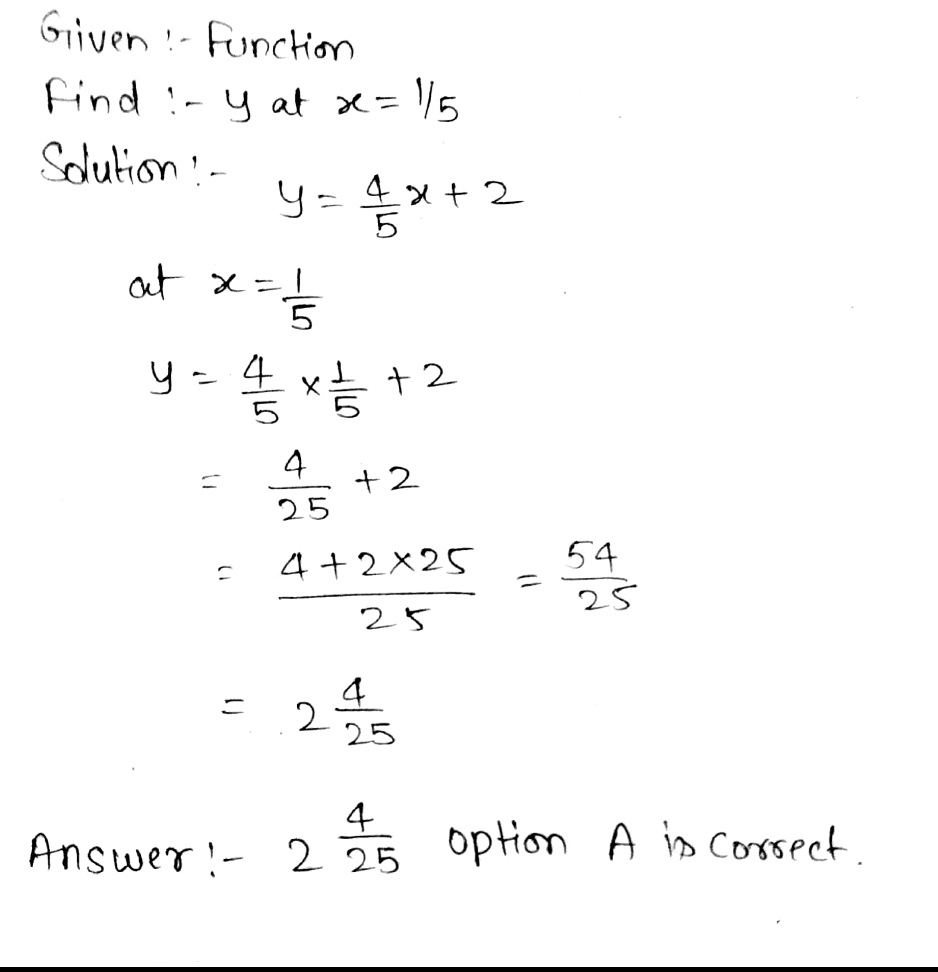 Given :- Function
Find :- y at x = 1/5
Solution :-
y = 4/5 x + 2
at x = 1/5
y = 4/5 × 1/5 + 2
= 4/25 + 2
= (4 + 2×25)/25 = 54/25
= 2 4/25
Answer :- 2 4/25 option A is correct.